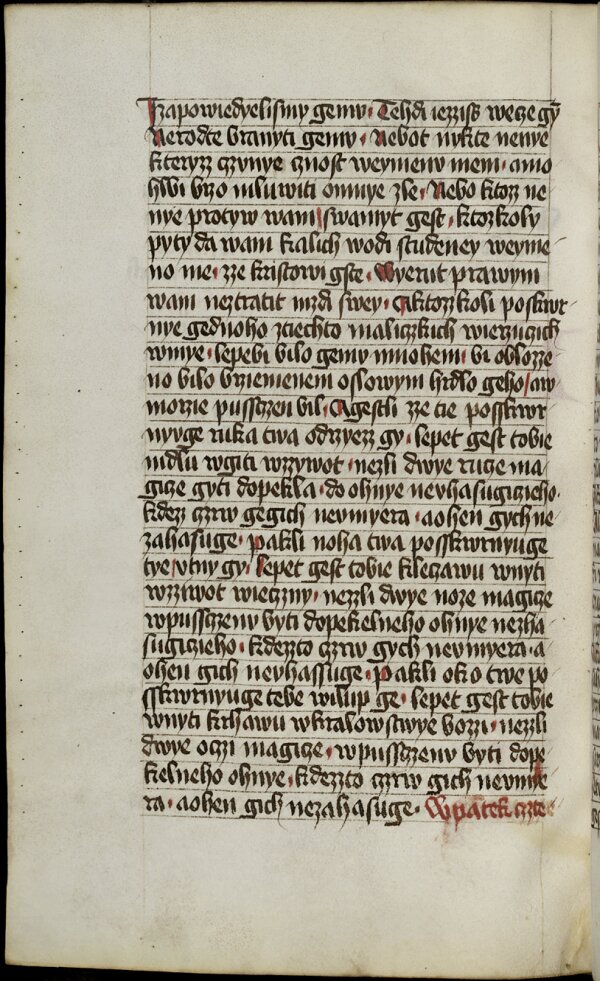 Izapowiedyelismy gemu. Tehdi iezziss wecze gym
Nerodte branyti gemu. Nebot nykte nenye
kteryzz czynye cznost weymenu mem. a mo
hlbi brzo miluwiti omnye zle. Nebo ktoz ne
nye protyw wam swamyt gest. ktozkoly
pyty da wam kalich wodi studeney weyme-
no me. zze kristowi gste. Wyerut prawym
wam neztratit mzdi swey. Aktozkoli poskwr-
nye gednoho ztiechto maliczkich wierziczich
wmye. lepebi bilo gemu mnohem. bi oblozze-
no bilo brziemenem oslowym hrdlo geho / aw
morzie pussczen bil. Agestli zze tie posskwr-
nyuge ruka twa odrzyezz gy. lepet gest tobie
mdlu wgiti wzzywot. nezli dwye rucze ma-
gicze gyti dopekla. do ohnye neuhasugicieho.
kdez czrw gegich neumyera. aohen gych ne
zahasuge. Pakli noha twa posskwrnyuge
tye / utny gy. lepet gest tobie kleczawu wnyti
wzziwot wieczny. nezzli dwye noze magicze
wpussczenu byti dopekelneho ohnye nezha
sugicieho. kdezto czrw gych neumyera. a
ohen gich neuhassuge. Pakli oko twe po
sskwrnyuge tebe wilup ge. lepet gest tobie
wnyti krhawu wkralowstwye bozzi. nezzli
dwye oczi magicze. wpussczenu byti dope
kelneho ohnye. kdezzto czrw gich neumie
ra. aohen gich nezahasuge. Wpatek czte